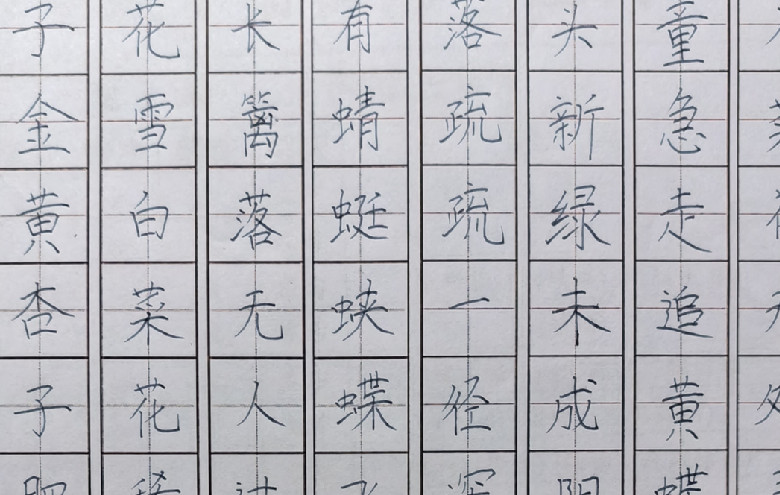 子金黄杏子肥
花雪白菜花稀
长篱落无人过
有蜻蜓蛱蝶飞
落疏疏一径深
头新绿未成阴
童急走追黄蝶